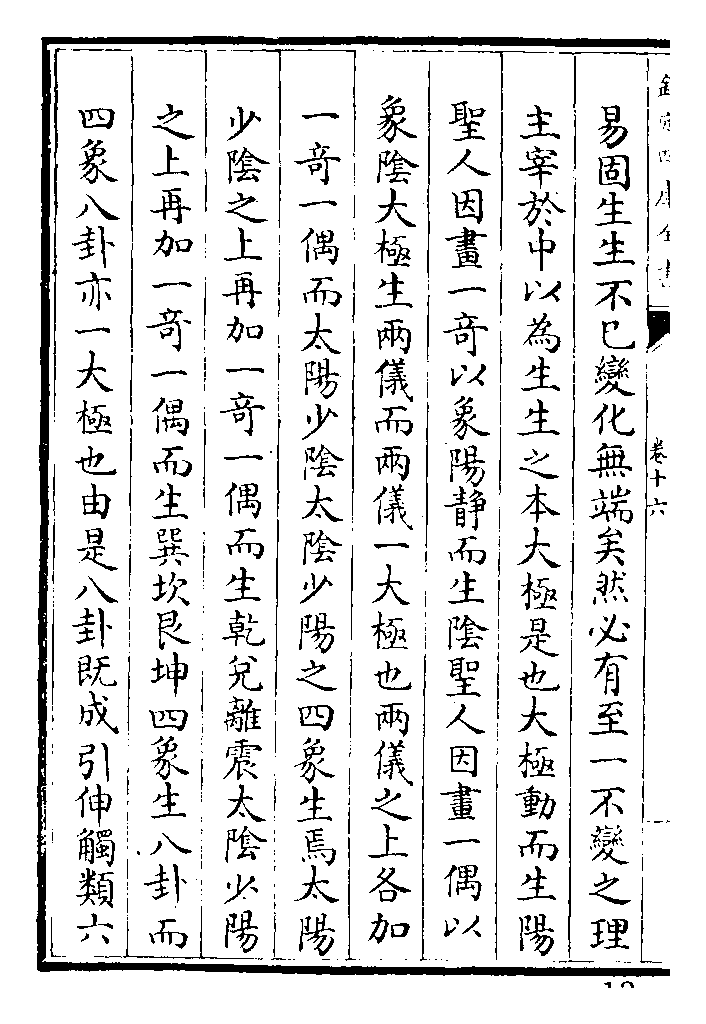 欽定四庫全書
卷十六
易固生生不已變化無端矣然必有至一不變之理
主宰於中以為生生之本大極是也大極動而生陽
聖人因畫一竒以象陽静而生陰聖人因畫一偶以
象陰大極生兩儀而兩儀一大極也兩儀之上各加
一竒一偶而太陽少陰太陰少陽之四象生焉太陽
少陰之上再加一竒一偶而生乾兌離震太陰少陽
之上再加一竒一偶而生巽坎艮坤四象生八卦而
四象八卦亦一大極也由是八卦既成引伸觸類六